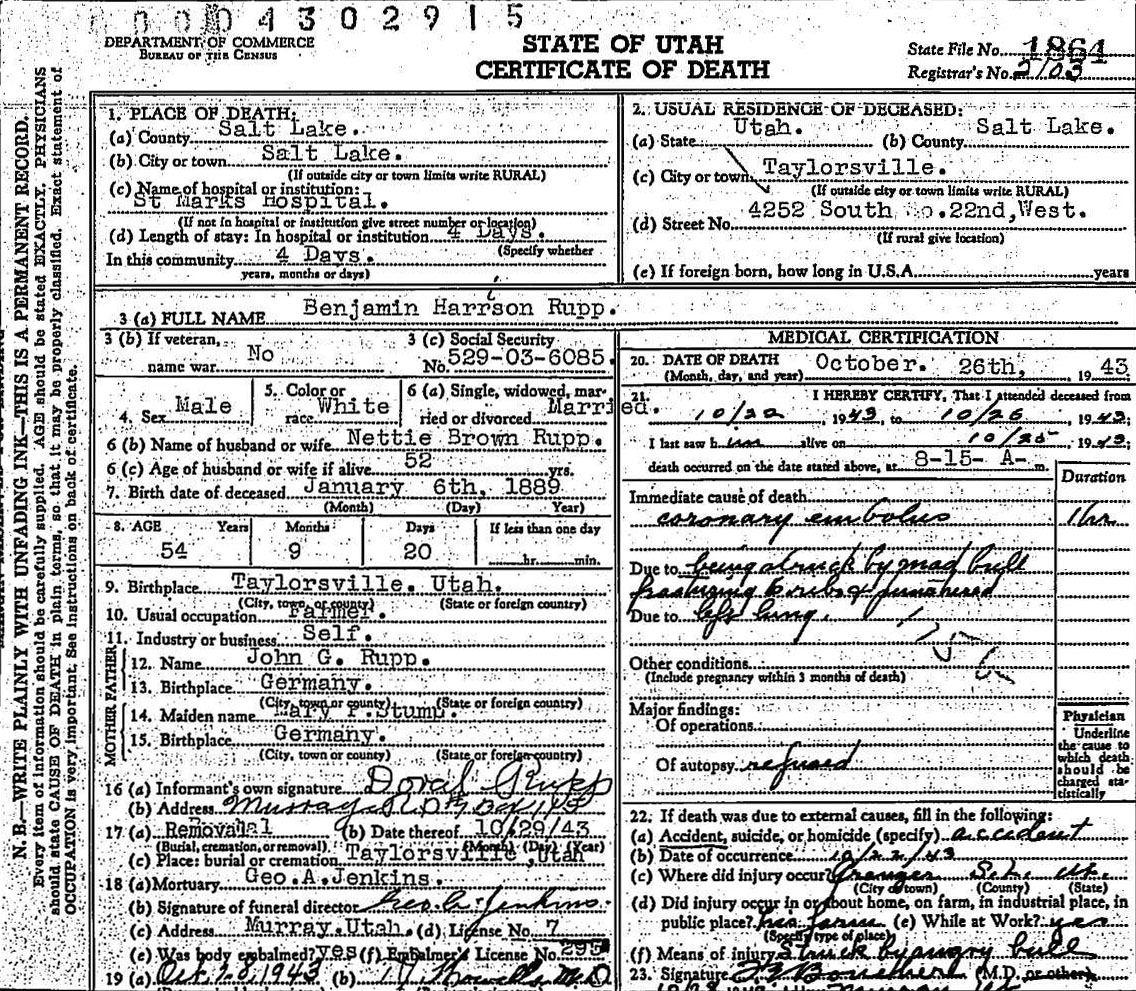 0 0 0 4 3 0 2 9 1 5
DEPARTMENT OF COMMERCE
BUREAU OF THE CENSUS
STATE OF UTAH
CERTIFICATE OF DEATH
State File No. 1864
Registrar's No. 2103
N. B.—WRITE PLAINLY WITH UNFADING INK—THIS IS A PERMANENT RECORD.
Every item of information should be carefully supplied. AGE should be stated EXACTLY. PHYSICIANS
should state CAUSE OF DEATH in plain terms, so that it may be properly classified. Exact statement of
OCCUPATION is very important. See instructions on back of certificate.
1. PLACE OF DEATH:
(a) County Salt Lake.
(b) City or town Salt Lake.
(If outside city or town limits write RURAL)
(c) Name of hospital or institution:
St Marks Hospital.
(If not in hospital or institution give street number or location)
(d) Length of stay: In hospital or institution 4 Days.
(Specify whether
In this community 4 Days.
years, months or days)
2. USUAL RESIDENCE OF DECEASED:
(a) State Utah. (b) County Salt Lake.
(c) City or town Taylorsville.
(If outside city or town limits write RURAL)
(d) Street No. 4252 South No.22nd,West.
(If rural give location)
(e) If foreign born, how long in U.S.A. years
3 (a) FULL NAME Benjamin Harrison Rupp.
3 (b) If veteran, name war No
3 (c) Social Security No. 529-03-6085.
4. Sex Male
5. Color or race White
6 (a) Single, widowed, married or divorced Married.
6 (b) Name of husband or wife Nettie Brown Rupp.
6 (c) Age of husband or wife if alive 52 yrs.
7. Birth date of deceased January 6th, 1889
(Month) (Day) Year)
8. AGE Years Months Days If less than one day
54 9 20 hr. min.
9. Birthplace Taylorsville. Utah.
(City, town, or county) (State or foreign country)
10. Usual occupation Farmer.
11. Industry or business Self.
FATHER
12. Name John G. Rupp.
13. Birthplace Germany.
(City, town or county) (State or foreign country)
MOTHER
14. Maiden name Mary F.Stump.
15. Birthplace Germany.
(City, town or county) (State or foreign country)
16 (a) Informant's own signature Doral Rupp
(b) Address Murray R.D #4 Box 143
17 (a) Removalal (b) Date thereof 10/29/43
(Burial, cremation, or removal) (Month) (Day) (Year)
(c) Place: burial or cremation Taylorsville ,Utah
18 (a) Mortuary Geo.A.Jenkins.
(b) Signature of funeral director Geo. A. Jenkins.
(c) Address Murray.Utah. (d) License No. 7
(e) Was body embalmed? yes (f) Embalmer's License No. 295
19 (a) Oct 28, 1943 (b) M.D
MEDICAL CERTIFICATION
20. DATE OF DEATH October. 26th, 19 43
(Month, day, and year)
21. I HEREBY CERTIFY, That I attended deceased from
10/22, 1943, to 10/26, 1943;
I last saw him alive on 10/25 1943;
death occurred on the date stated above, at 8-15- A- m.
Duration
Immediate cause of death
coronary embolus 1hr
Due to being struck by mad bull
fracturing ribs & punctured
Due to left lung.
Other conditions
(Include pregnancy within 3 months of death)
Major findings:
Of operations
Of autopsy refused
Physician
Underline
the cause to
which death
should be
charged sta-
tistically
22. If death was due to external causes, fill in the following:
(a) Accident, suicide, or homicide (specify) accident
(b) Date of occurrence 10/22/43
(c) Where did injury occur? Granger S.L. Ut.
(City or town) (County) (State)
(d) Did injury occur in or about home, on farm, in industrial place, in
public place? his farm (e) While at Work? yes
(Specify type of place)
(f) Means of injury Struck by angry bull
23. Signature (M.D. or other)